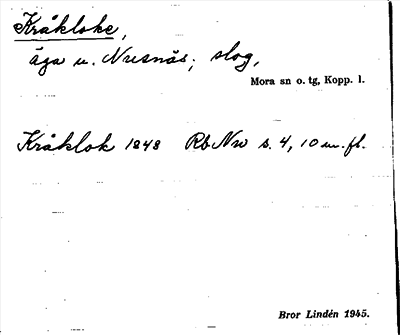 Kråkloke,
äga u. Nusnäs; slog,
Mora sn o. tg, Kopp. l.
Kråklok 1848 Rb Nw s. 4, 10 m. fl.
Bror Lindén 1945.